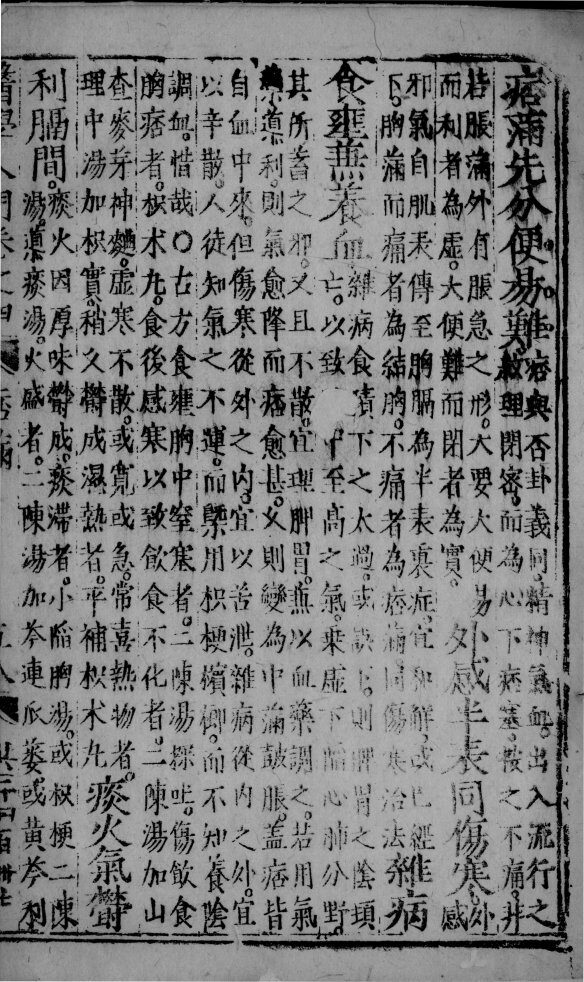 痞滿先分便易難
雖痞與否卦義同精神氣血出入流行之
紋理閉密而為心下痞塞按之不痛非
若脹滿外有脹急之形大要大便易
而利者為虛大便難而閉者為實
外感半表同傷寒
外
感
邪氣自肌表傳至胸膈為半表裏症宜和解或已經
下胸滿而痛者為結胸不痛者為痞滿同傷寒治法
雜病
食壅兼養血
雜病食積下之太過或誤下則脾胃之陰頓
亡以致中至高之氣乘虛下陷心肺分野
其所蓄之邪又且不散宜理脾胃兼以血藥調之若用氣
藥導利則氣愈降而痞愈甚久則變為中滿鼓脹蓋痞皆
自血中來但傷寒從外之內宜以苦泄雜病從內之外宜
以辛散人徒知氣之不運而槩用枳梗檳榔而不知養陰
調血惜哉○古方食壅胸中窒塞者二陳湯探吐傷飲食
胸痞者枳朮丸食後感寒以致飲食不化者二陳湯加山
查麥芽神麯虛寒不散或寬或急常喜熱物者
理中湯加枳實稍久鬱成濕熱者平補枳朮丸
痰火氣鬱
利膈間
痰火因厚味鬱成痰滯者小陷胸湯或枳梗二陳
湯導痰湯火盛者二陳湯加芩連瓜蔞或黃芩利
醫學入門卷之四 痞滿 五八